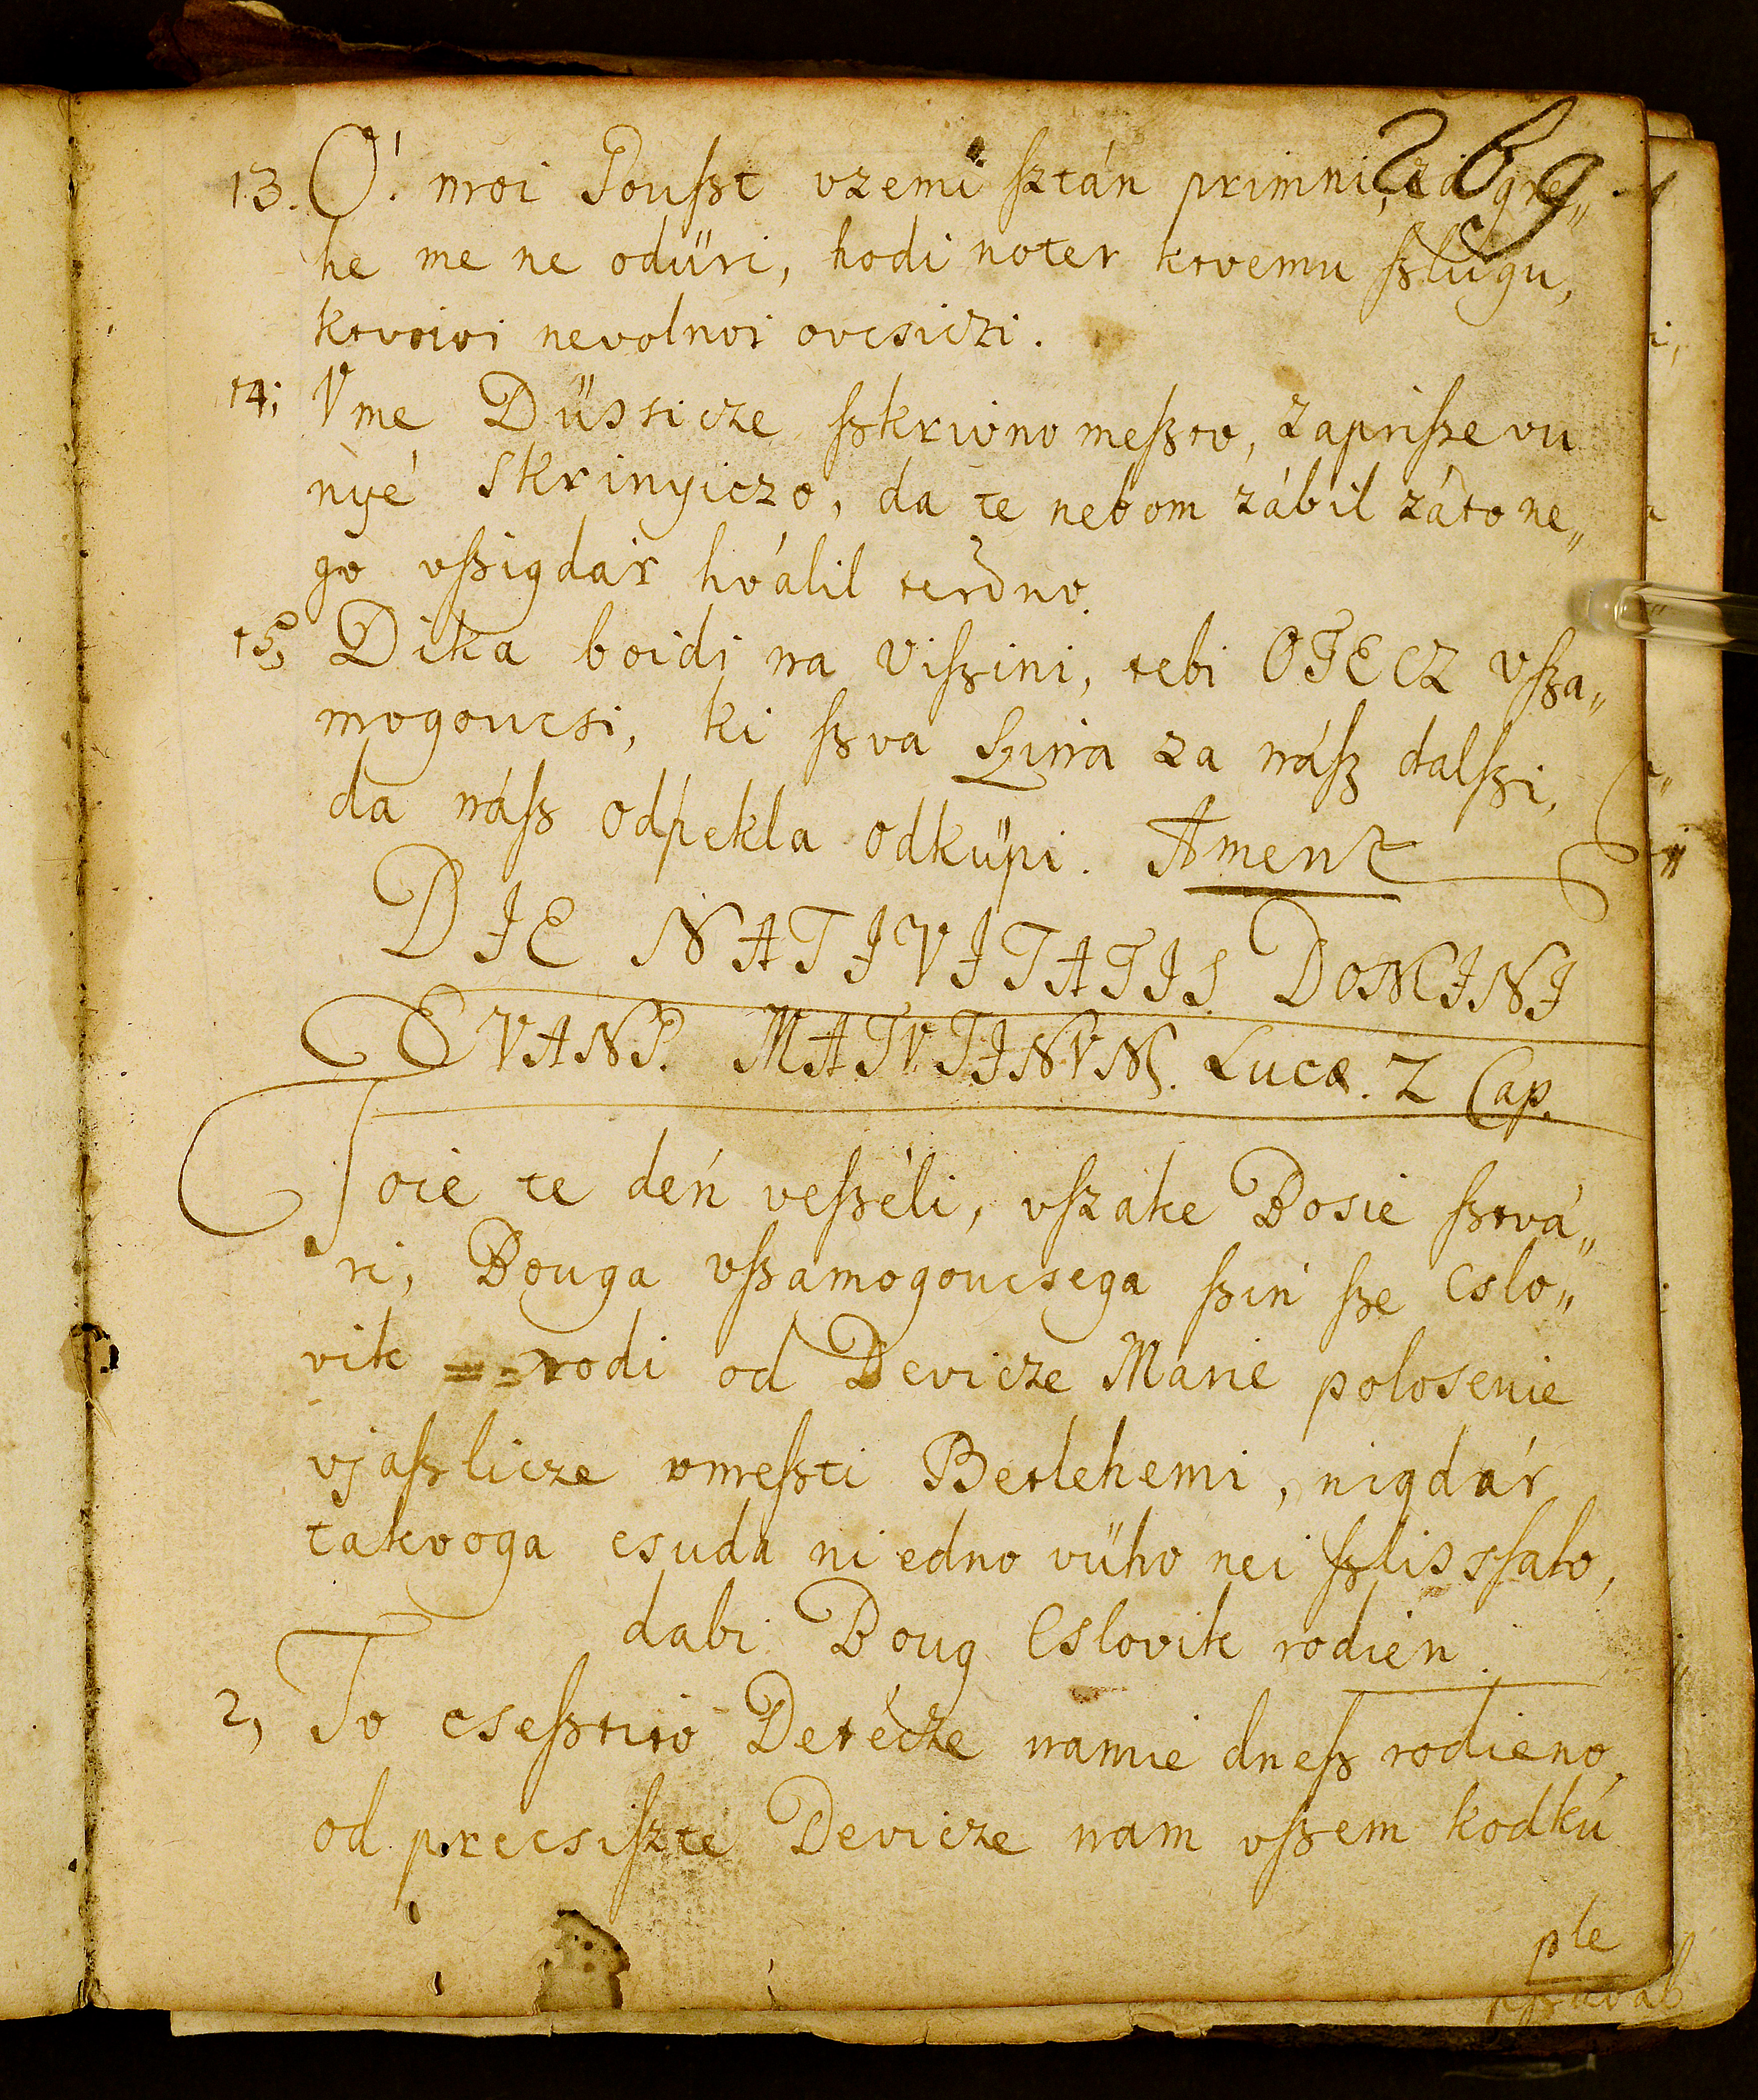 269
13. O! moi Pouſzt vzemi ſztán primni, zá gre„
he me ne odüri, hodi noter ktvemu ſzlugu,
ktvoioi nevolnoi ovcsiczi.
14; Vme Düssicze ſzkrivno meſzto, zapriſze vu
nyé skrinyiczo, da te nebom zábil záto ne„
go vſzigdár hválil terdno.
15, Dika boidi na Viſzini, tebi OTECZ vſza„
mogoucsi, ki ſzva ſzina za náſz dalſzi,
da náſz odpekla odküpi. Ament
DIE NATIVITATIS DOMINI
EVANG. MATVTINVM. Lucæ. 2 Cap.
Toie te dén veſzéli, vſzake Bosie ſztvá„
ri, Bouga vſzamogoucsega ſzin ſze cslo„
vik rodi od Devicze Marie polosenie
vjaſzlicze vmeſzti Betlehemi, nigdár
takvoga csuda ni edno vüho nei ſzlisſalo,
dabi Boug Cslovik rodien.
2, To cseſztito Detécze namie dneſz rodieno,
od precsiſzte Devicze nam vſzem kodkú
ple